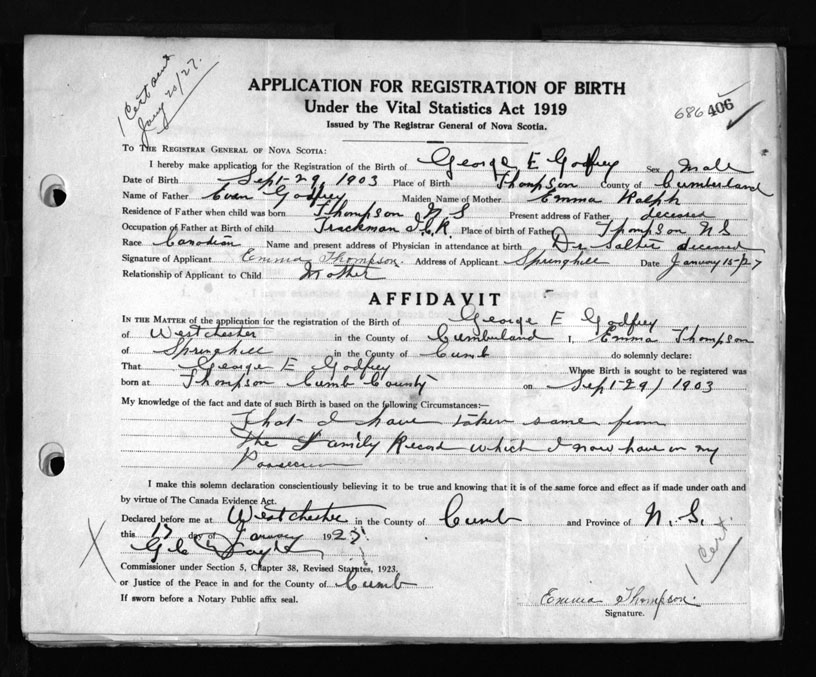 1 Cert
Jany 20/27.
APPLICATION FOR REGISTRATION OF BIRTH
Under the Vital Statistics Act 1919
Issued by The Registrar General of Nova Scotia.
686 406
TO THE REGISTRAR GENERAL OF NOVA SCOTIA:
I hereby make application for the Registration of the Birth of George E Godfrey Sex Male
Date of Birth Sept-29 1903 Place of Birth Thompson County of Cumberland
Name of Father Evan Godfrey Maiden Name of Mother Emma Ralph
Residence of Father when child was born Thompson N S Present address of Father deceased
Occupation of Father at Birth of child Trackman I.C.R. Place of birth of Father Thompson N S
Race Canadian Name and present address of Physician in attendance at birth Dr deceased
Signature of Applicant Emma Thompson. Address of Applicant Springhill Date January 15-/27
Relationship of Applicant to Child Mother
AFFIDAVIT
IN THE MATTER of the application for the registration of the Birth of George E Godfrey
of Westchester in the County of Cumberland I, Emma Thompson
of Springhill in the County of Cumb do solemnly declare:
That George E Godfrey Whose Birth is sought to be registered was
born at Thompson Cumb County on Sept-29/ 1903
My knowledge of the fact and date of such Birth is based on the following Circumstances:—
That I have taken same from
the Family Record which I now have in my
I make this solemn declaration conscientiously believing it to be true and knowing that it is of the same force and effect as if made under oath and
by virtue of The Canada Evidence Act.
Declared before me at Westchester in the County of Cumb and Province of N. S.
this 15 day of January 192
Commissioner under Section 5, Chapter 38, Revised Statutes, 1923.
or Justice of the Peace in and for the County of Cumb
If sworn before a Notary Public affix seal.
1 Cert.
Emma Thompson.
Signature.